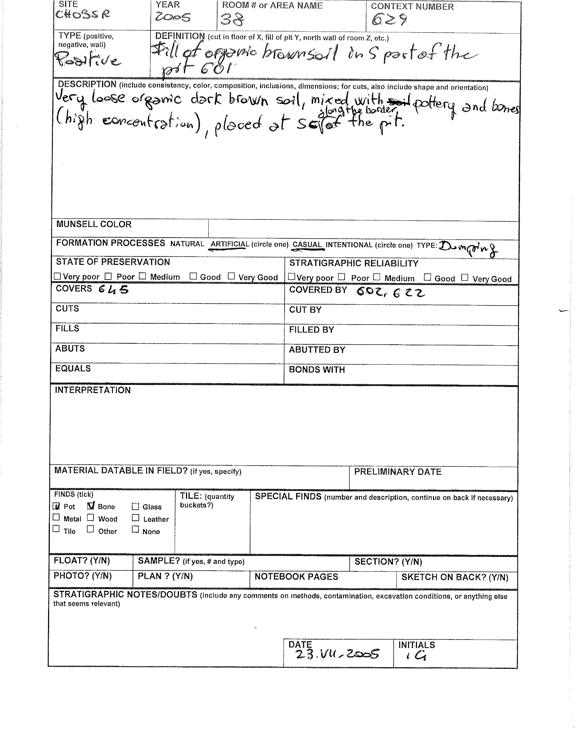 SITE YEAR ROOM # or AREA NAME CONTEXT NUMBER
CHOSSR 2005 38 629
TYPE (positive, negative, wall) DEFINITION (cut in floor of X, fill of pit Y, north wall of room Z, etc.)
Positive Fill of organic brown soil in S part of the
pit 601
DESCRIPTION (include consistency, color, composition, inclusions, dimensions; for cuts, also include shape and orientation)
Very loose organic dark brown soil, mixed with pottery and bones
along the border
(high concentration), placed at S of the pit.
MUNSELL COLOR
FORMATION PROCESSES NATURAL ARTIFICIAL (circle one) CASUAL INTENTIONAL (circle one) TYPE: Dumping
STATE OF PRESERVATION STRATIGRAPHIC RELIABILITY
☐ Very poor ☐ Poor ☐ Medium ☐ Good ☐ Very Good ☐ Very poor ☐ Poor ☐ Medium ☐ Good ☐ Very Good
COVERS 645 COVERED BY 602, 622
CUTS CUT BY
FILLS FILLED BY
ABUTS ABUTTED BY
EQUALS BONDS WITH
INTERPRETATION
MATERIAL DATABLE IN FIELD? (if yes, specify) PRELIMINARY DATE
FINDS (tick) TILE: (quantity buckets?) SPECIAL FINDS (number and description, continue on back if necessary)
☑ Pot ☑ Bone ☐ Glass
☐ Metal ☐ Wood ☐ Leather
☐ Tile ☐ Other ☐ None
FLOAT? (Y/N) SAMPLE? (if yes, # and type) SECTION? (Y/N)
PHOTO? (Y/N) PLAN ? (Y/N) NOTEBOOK PAGES SKETCH ON BACK? (Y/N)
STRATIGRAPHIC NOTES/DOUBTS (include any comments on methods, contamination, excavation conditions, or anything else
that seems relevant)
DATE INITIALS
23.VII.2005 IG